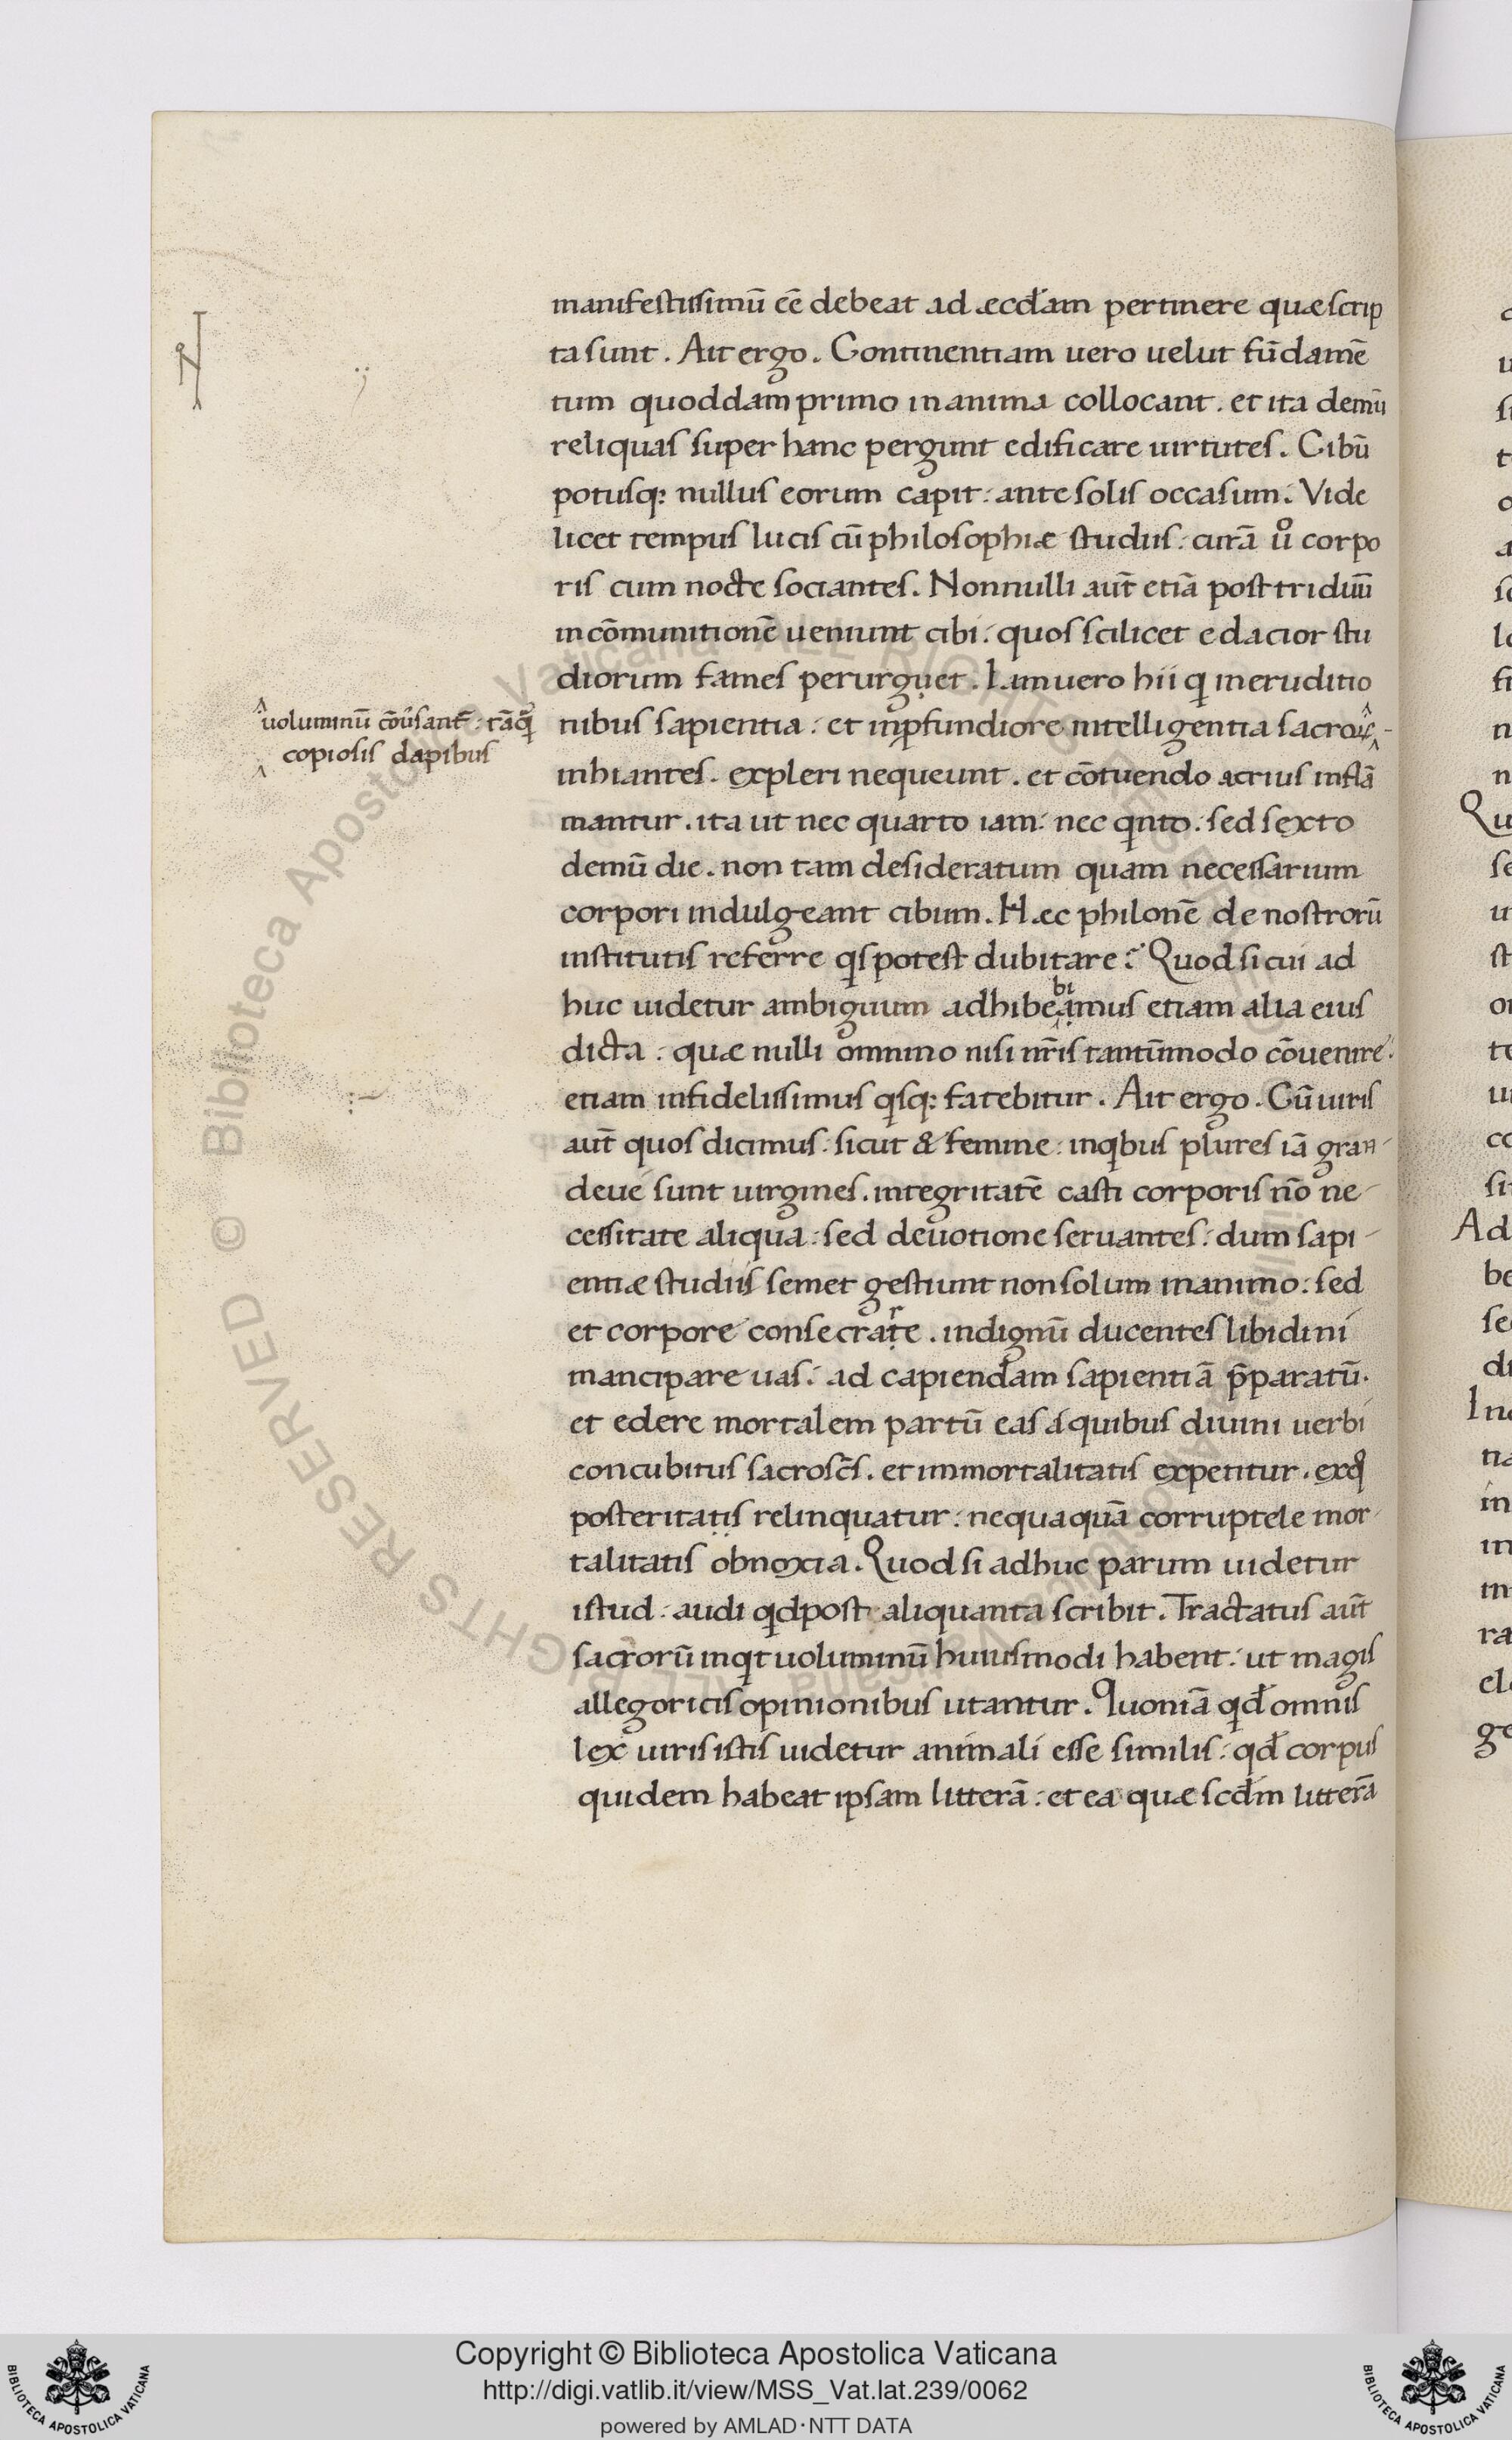 manifestissimū eē debeat ad æccl̄am pertinere quæ scrip
ta sunt . Ait ergo . Continentiam uero uelut fūdamē
tum quoddam primo in anima collocant . et ita demū
reliquas super hanc pergunt edificare uirtutes . Cibū
potusq; nullus eorum capit : ante solis occasum . Vide
licet tempus lucis cū philosophiæ studiis : curā ů corpo
ris cum nocte sociantes . Nonnulli aut̄ etiā post triduū
in cōmunitionē ueniunt cibi : quos scilicet edacior stu
diorum fames perurguet . Iam uero hii qi in eruditio
uoluminū cōuersant̄ : tāqͣ
copiosis dapibus
nibus sapientia : et in ꝓfundiore intelligentia sacroꝝ
inhiantes . expleri nequeunt . et cōtuendo acrius inflā
mantur . ita ut nec quarto iam : nec qinto : sed sexto
demū die . non tam desideratum quam necessarium
corpori indulgeant cibum . Hæc philonē de nostrorū
institutis referre qis potest dubitare ? Quod si cui ad
bi
huc uidetur ambiguum adhibeamus etiam alia eius
dicta : quæ nulli omnino nisi nr̄is tantūmodo cōuenire :
etiam infidelissimus qisq; fatebitur . Ait ergo . Cū uiris
aut̄ quos dicimus : sicut & femine : in qibus plures iā gran-
deue sunt uirgines . integritatē casti corporis nō ne-
cessitate aliqua : sed deuotione seruantes : dum sapi-
entiæ studiis semet gestiunt non solum in animo : sed
r
et corpore consecrate . indignū ducentes libidini
mancipare uas : ad capiendam sapientiā p̄paratū .
et edere mortalem partū eas á quibus diuini uerbi
concubitus sacrosc̄s . et immortalitatis expetitur . ex q
posteritatis relinquatur : nequaquā corruptele mor-
talitatis obnoxia . Quod si adhuc parum uidetur
istud : audi qid post aliquanta scribit . Tractatus aut̄
sacrorū inqit uoluminū huiusmodi habent : ut magis
allegoricis opinionibus utantur . Quoniā qd̄ omnis
lex uiris istis uidetur animali esse similis : qd̄ corpus
quidem habeat ipsam litterā : et ea quæ scd̄m litterā
Copyright © Biblioteca Apostolica Vaticana
http://digi.vatlib.it/view/MSS_Vat.lat.239/0062
powered by AMLAD·NTT DATA